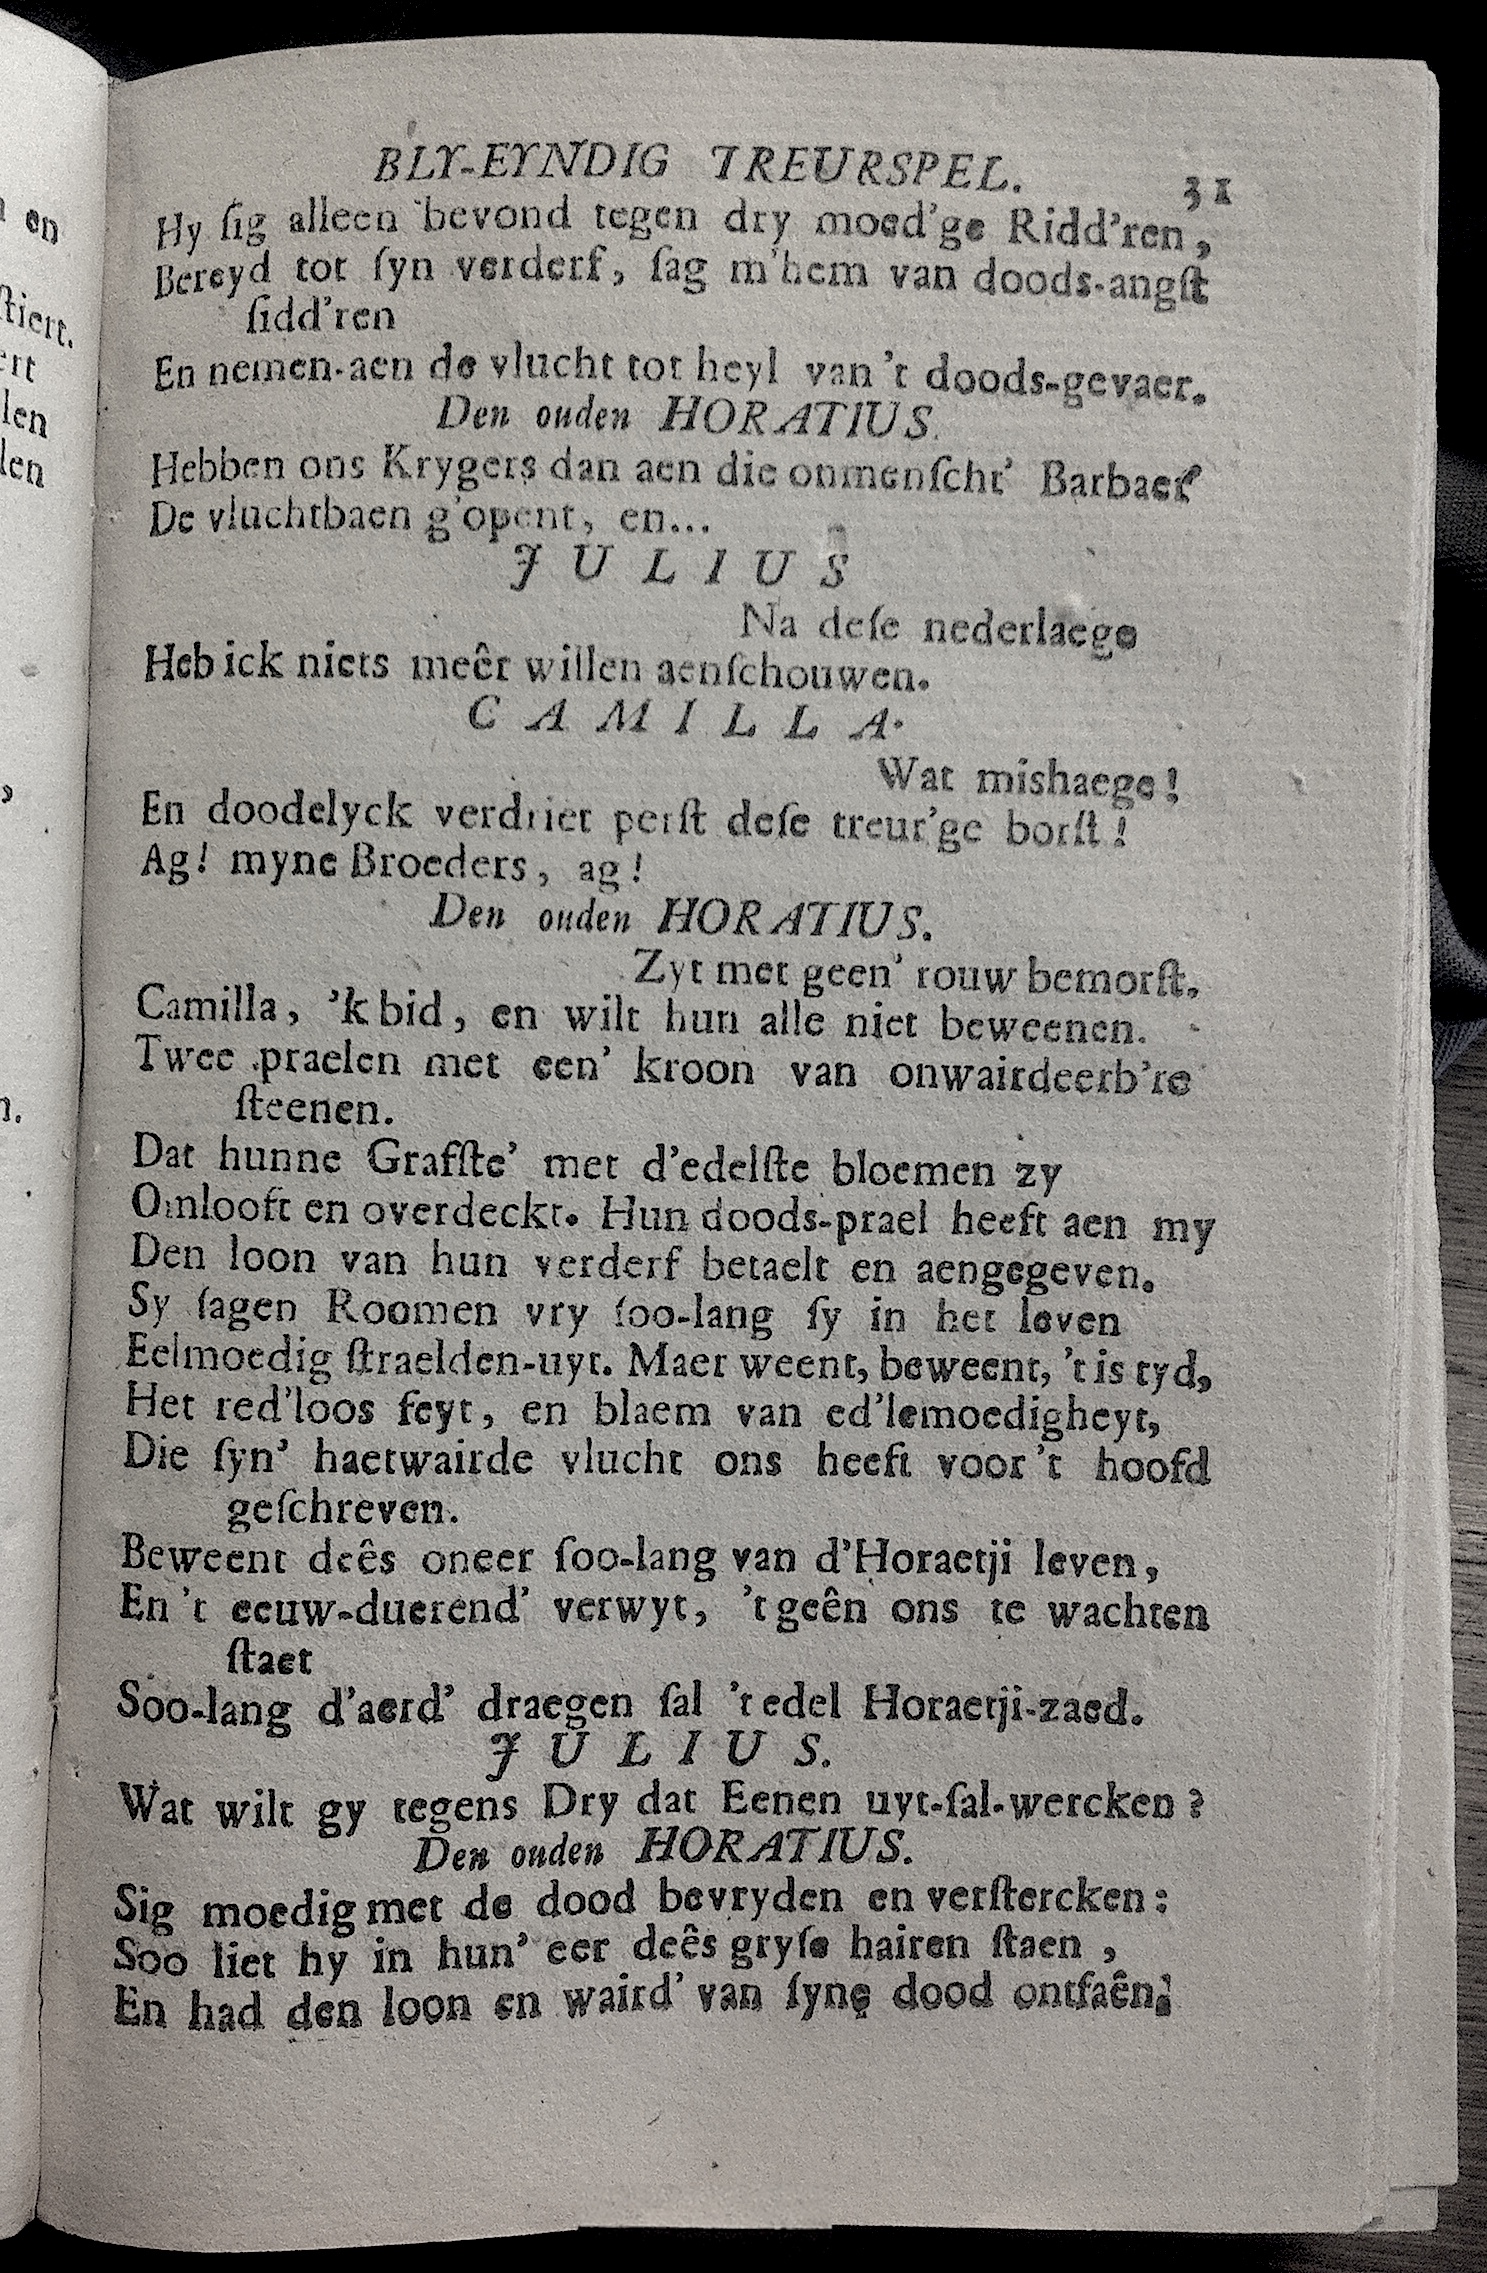 n en
BLY-EYNDIG TREURSPEL. 31
Hy ſig alleen bevond tegen dry moed'ge Ridd'ren,
Bereyd tot ſyn verderf, ſag m'hem van doods-angſt
ſidd'ren
En nemen-aen de vlucht tot heyl van 't doods-gevaer.
Den ouden HORATIUS.
Hebben ons Krygers dan aen die onmenſcht' Barbaer
De vluchtbaen g'opent, en...
JULIUS
Na deſe nederlaege
Heb ick niets meêr willen aenſchouwen.
CAMILLA.
Wat mishaege!
En doodelyck verdriet perſt deſe treur'ge borſt!
Ag! myne Broeders, ag!
Den ouden HORATIUS.
Zyt met geen' rouw bemorſt,
Camilla, 'k bid, en wilt hun alle niet beweenen.
Twee praelen met een' kroon van onwairdeerb're
ſteenen.
Dat hunne Grafſte' met d'edelſte bloemen zy
Omlooft en overdeckt. Hun doods-prael heeft aen my
Den loon van hun verderf betaelt en aengegeven.
Sy ſagen Roomen vry ſoo-lang ſy in het leven
Eelmoedig ſtraelden-uyt. Maer weent, beweent, 't is tyd,
Het red'loos feyt, en blaem van ed'lemoedigheyt,
Die ſyn' haetwairde vlucht ons heeft voor 't hoofd
geſchreven.
Beweent deês oneer ſoo-lang van d'Horaetji leven,
En 't eeuw-duerend' verwyt, 't geên ons te wachten
ſtaet
Soo-lang d'aerd' draegen ſal 't edel Horaetji-zaed.
JULIUS.
Wat wilt gy tegens Dry dat Eenen uyt-ſal-wercken?
Den ouden HORATIUS.
Sig moedig met de dood bevryden en verſtercken:
Soo liet hy in hun' eer deês gryſe hairen ſtaen,
En had den loon en waird' van ſyne dood ontfaên;